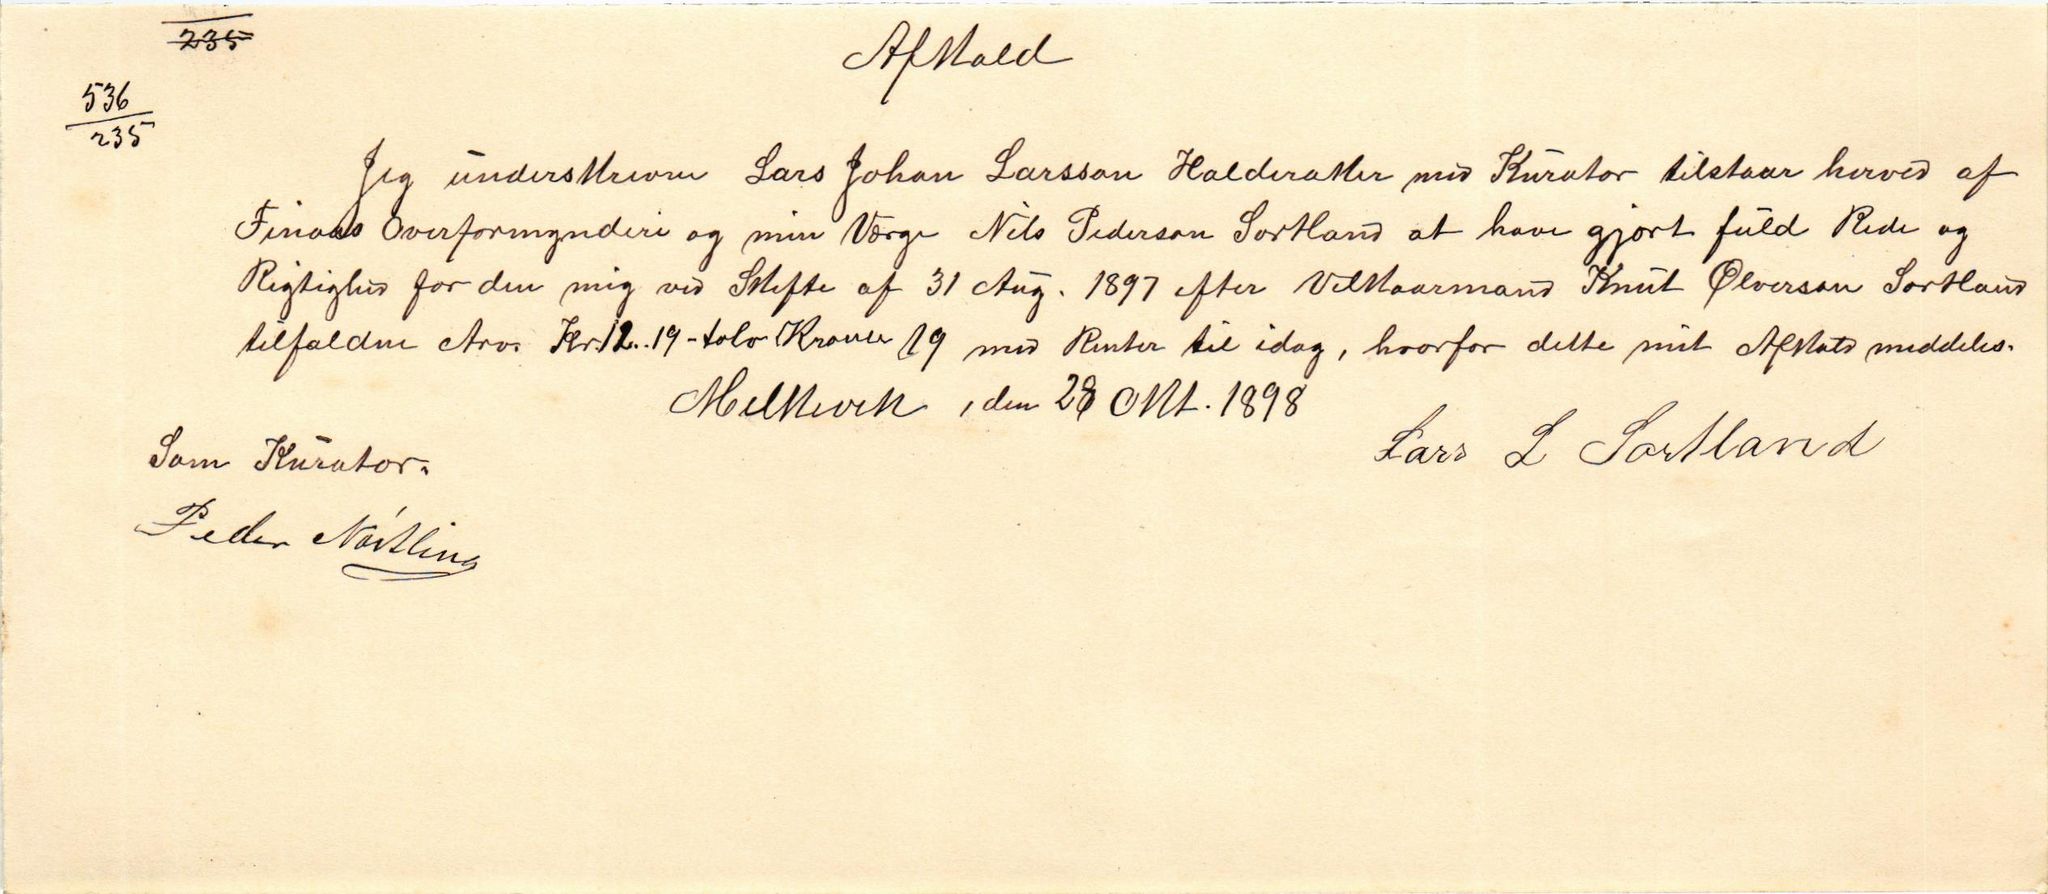 235
536
235
Afkald
Jeg underskrevne Lars Johan Larsson Halderaker med Kurator tilstaar herved af
Finaas Overformynderi og min Værge Nils Pederson Sortland at have gjort fuld Rede og
Rigtighed for den mig ved Skifte af 31 Aug. 1897 efter Velkaarmand Knut Ølverson Sortland
tilfaldne Arv. Kr. 12.. 19 - tolv Kroner 19 med Renter til idag, hvorfor dette mit Afkald meddeles.
Melkevik, den 28 Okt. 1898
Lars L Sortland
Som Kurator.
Peder